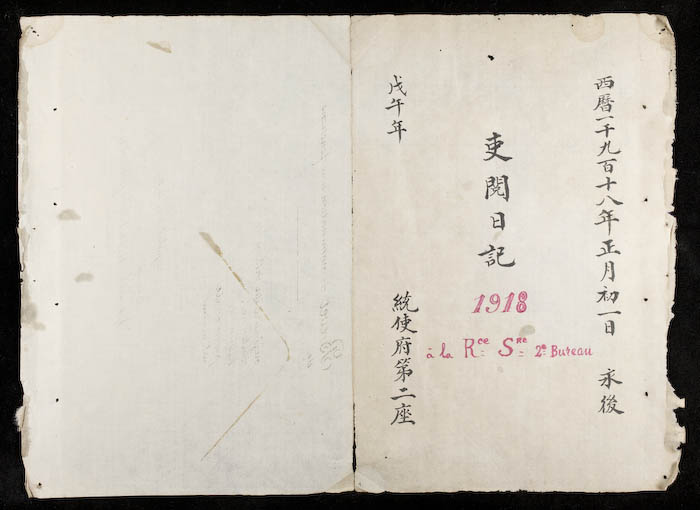 西曆一千九百十八年正月初一日 承後
吏閱日記
1918
à la Rce Sre 2e Bureau
戊午年
統使府第二座